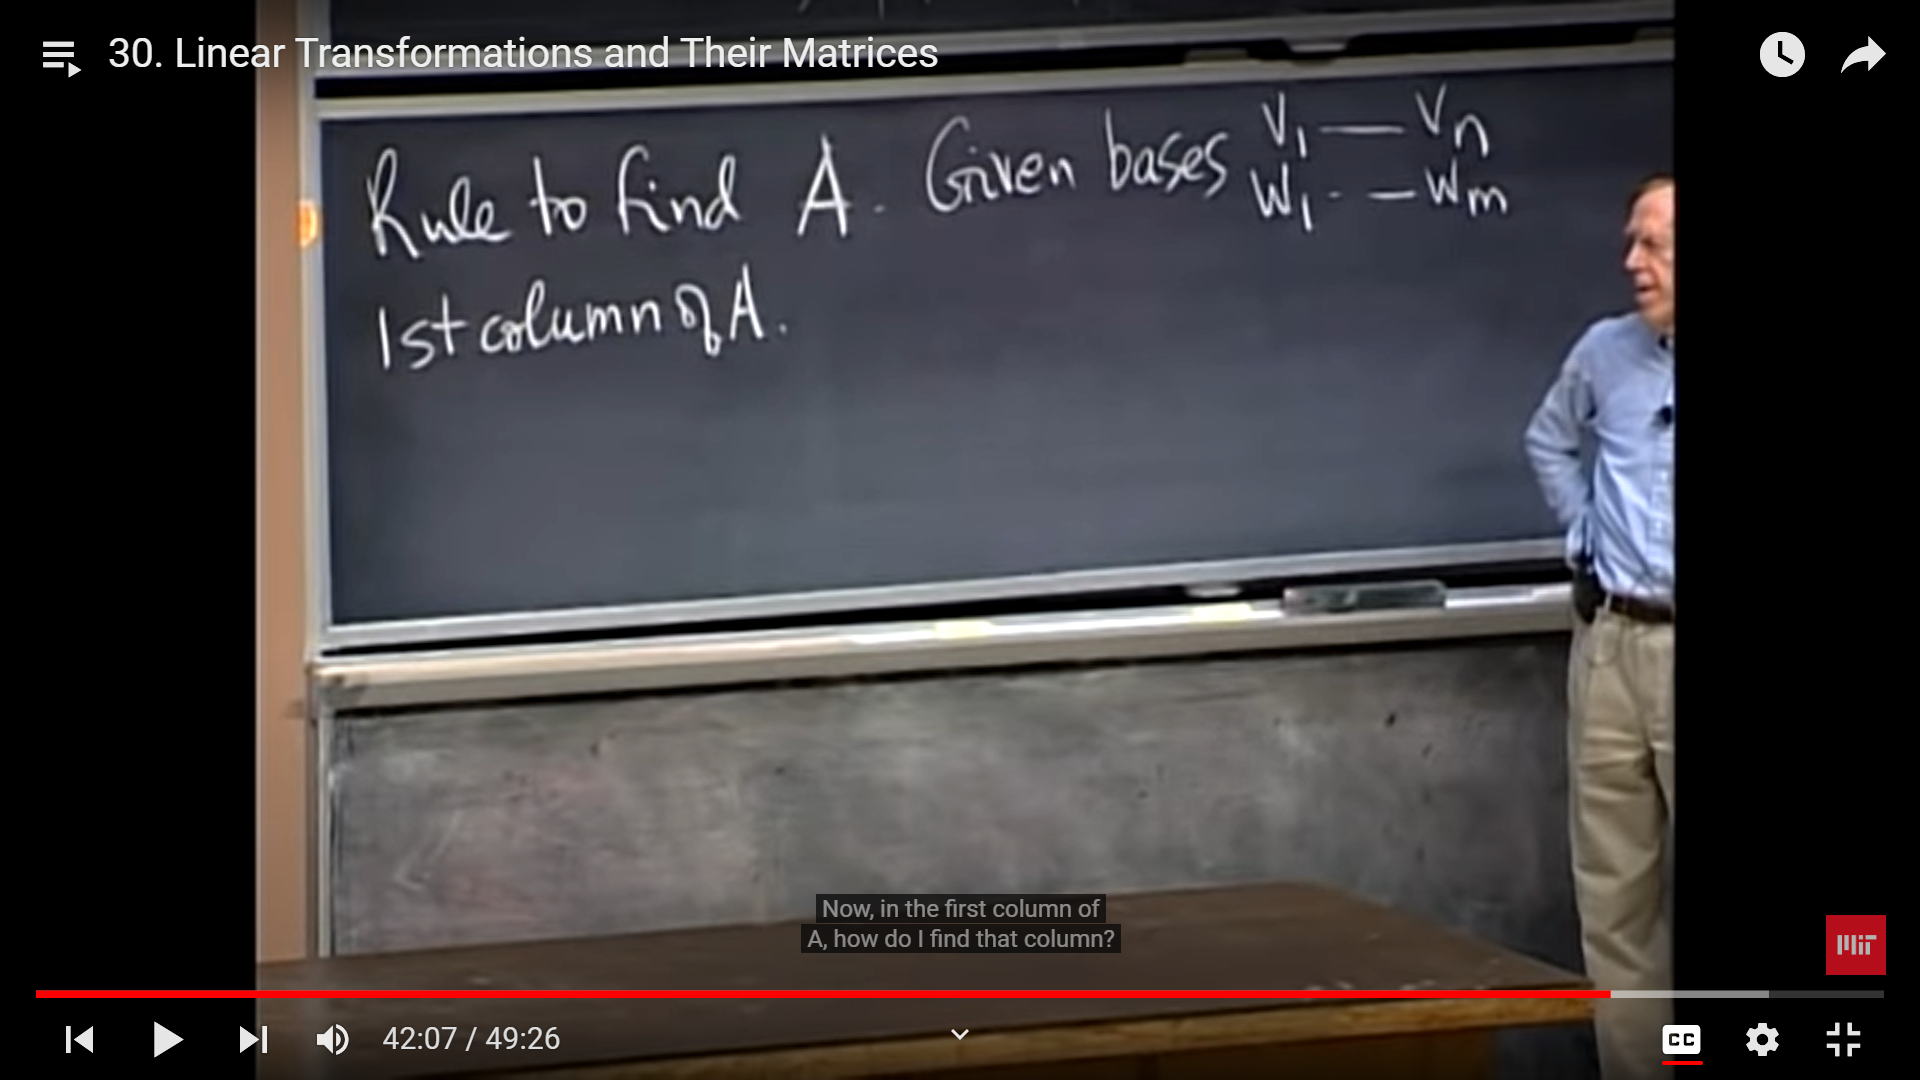 30. Linear Transformations and Their Matrices
Rule to find A. Given bases v₁ — vₙ
w₁ - — wₘ
1st column of A.
Now, in the first column of
A, how do I find that column?
MIT
42:07 / 49:26
CC